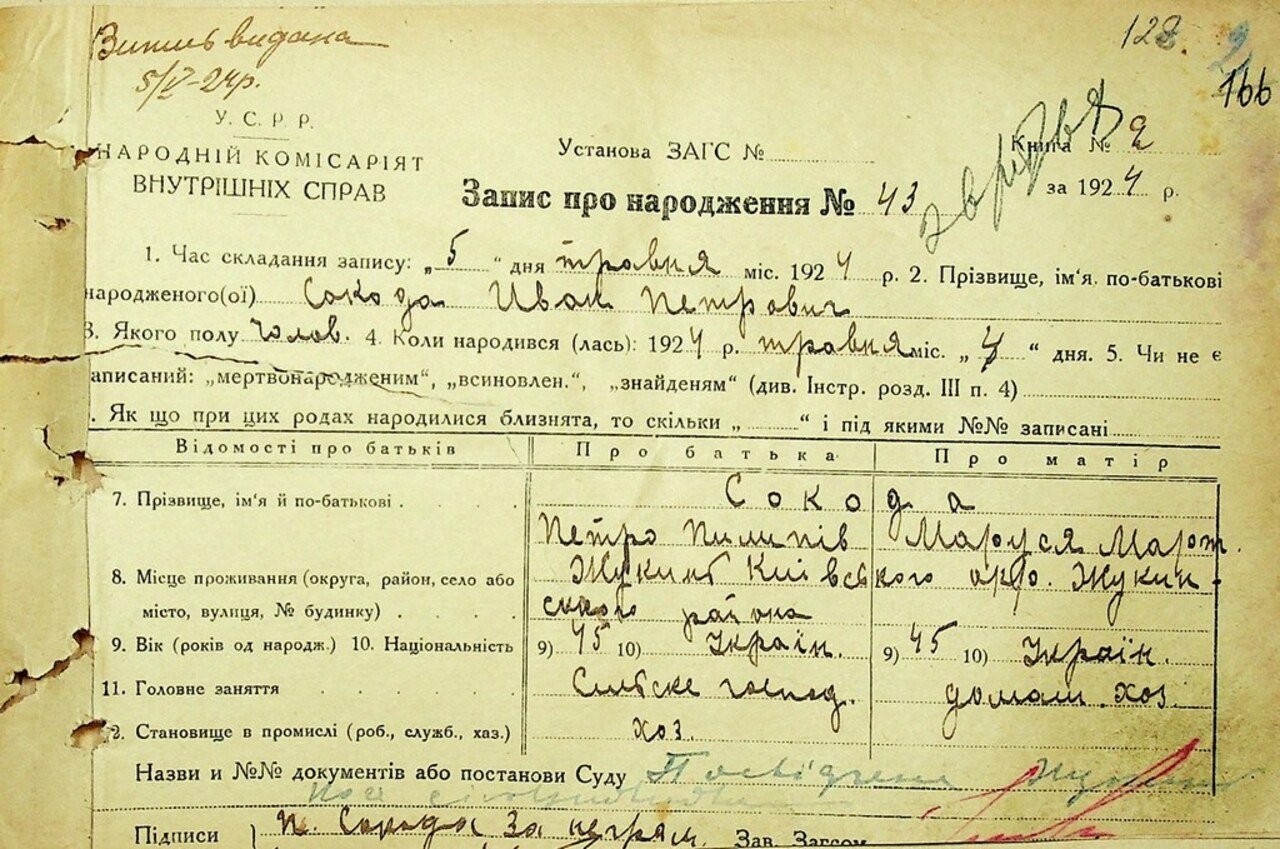 Витись видана
128.
5/V-24р.
166
У. С. Р. Р.
НАРОДНІЙ КОМІСАРІЯТ
ВНУТРІШНІХ СПРАВ
Установа ЗАГС №
Книга № 2
Запис про народження № 43
за 1924 р.
1. Час складання запису: „5“ дня травня міс. 1924 р. 2. Прізвище, ім'я, по-батькові
народженого(ої) Сокода Иван Петрович
3. Якого полу чолов. 4. Коли народився (лась): 1924 р. травня міс. „4“ дня. 5. Чи не є
аписаний: „мертвонародженим“, „всиновлен.“, „знайденям“ (див. Інстр. розд. III п. 4)
. Як що при цих родах народилися близнята, то скільки „ “ і під якими №№ записані
Відомості про батьків
Про батька
Про матір
7. Прізвище, ім'я й по-батькові
Сокода
Петро Пилипів
Маруся Март.
8. Місце проживання (округа, район, село або
місто, вулиця, № будинку)
Жукинь Київського окр. Жукин-
ського района
9. Вік (років од народж.) 10. Національність
9) 45 10) Україн.
9) 45 10) Україн.
11. Головне заняття
Сильске господ.
домаш. хоз.
2. Становище в промислі (роб., служб., хаз.)
хоз.
Назви и №№ документів або постанови Суду Посвідчення
Підписи
п. Сокода за негрям.
Зав. Загсом